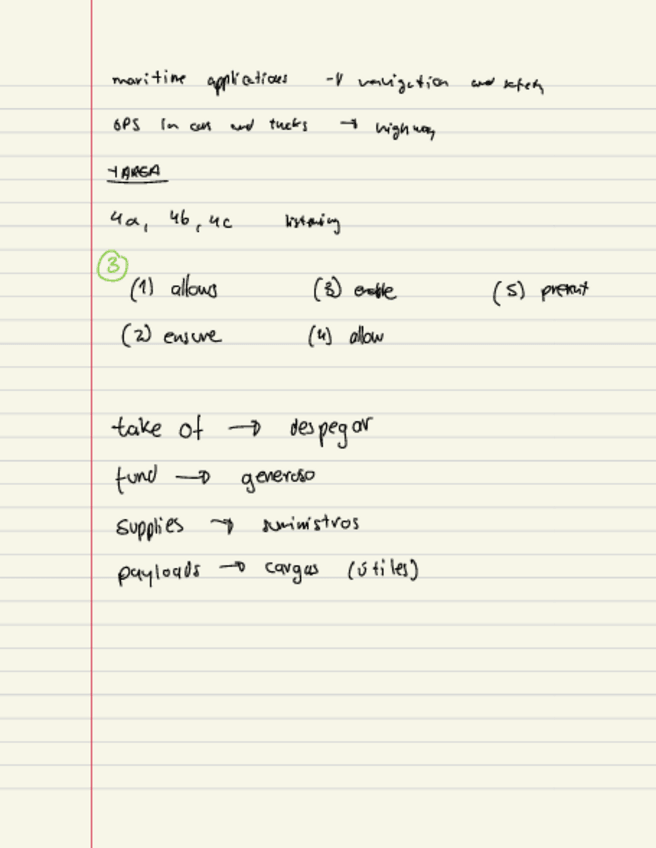 maritime applications → navigation and safety
GPS in cars and trucks → highway
TAREA
4a, 4b, 4c listening
3
(1) allows (3) enable (5) prevent
(2) ensure (4) allow
take of → despegar
fund → generoso
supplies → suministros
payloads → cargas (útiles)